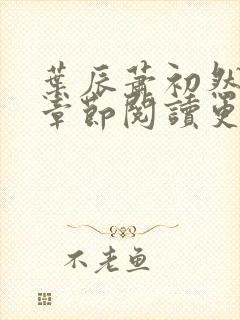 葉辰蕭初然
章節閱讀更
不老魚